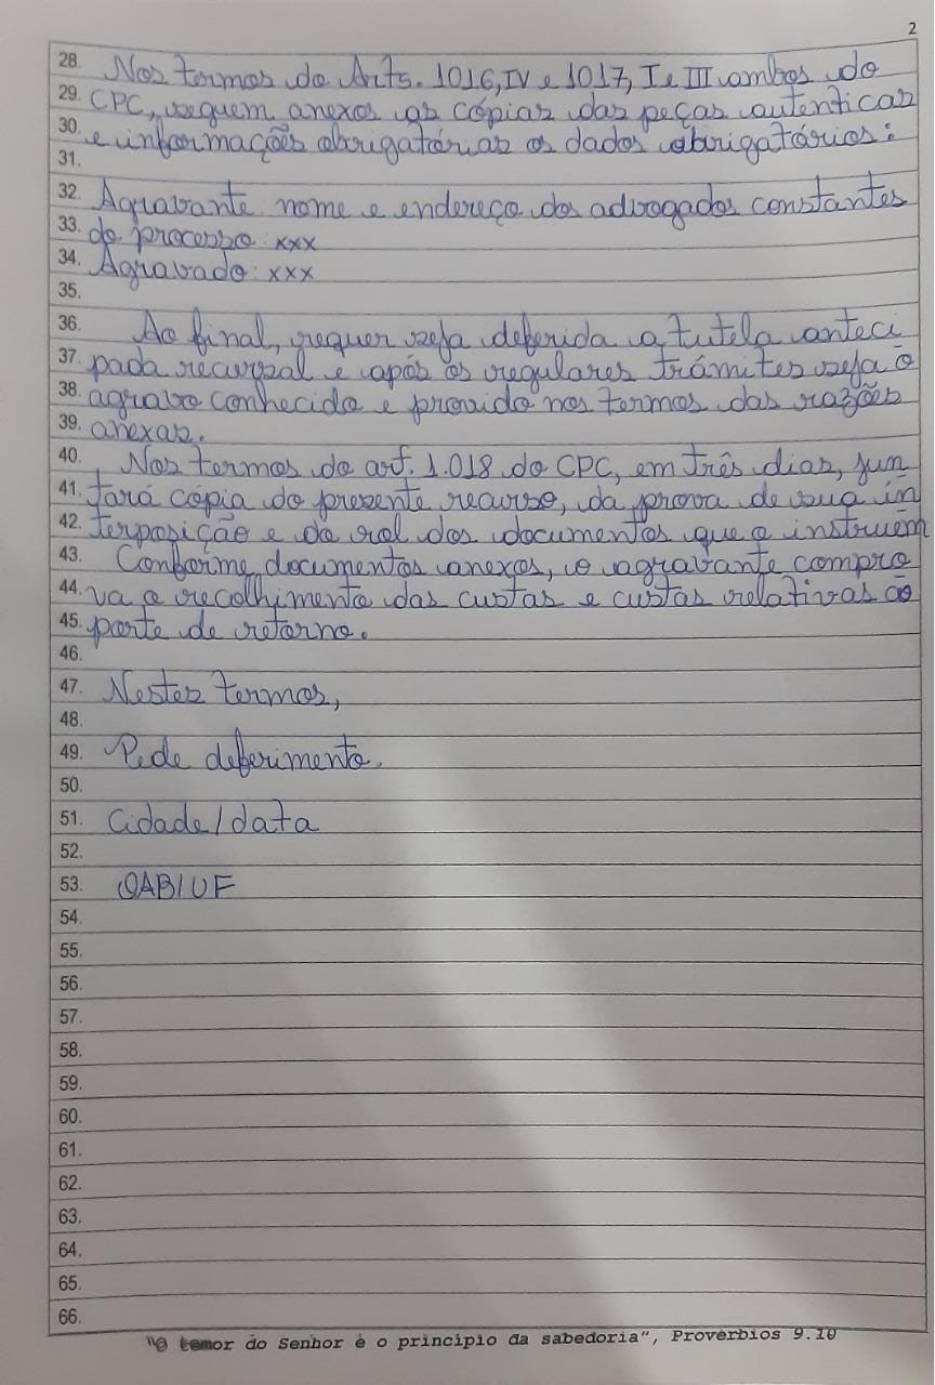 2
28. Nos termos do Arts. 1016, IV e 1017, I e III ambos do
29. CPC, seguem anexos as cópias das peças autenticas
30. e informações obrigatórias os dados obrigatórios:
31.
32. Agravante nome e endereço dos advogados constantes
33. do processo: xxx
34. Agravado: xxx
35.
36. Ao final, requer seja deferida a tutela anteci
37. pada recursal e após os regulares trâmites seja o
38. agravo conhecido e provido nos termos das razões
39. anexas.
40. Nos termos do art. 1.018 do CPC, em três dias, jun
41. tará cópia do presente recurso, da prova de sua in
42. terposição e do rol dos documentos que o instruem
43. Conforme documentos anexos, o agravante compro
44. va o recolhimento das custas e custas relativas ao
45. porte de retorno.
46.
47. Nestes termos,
48.
49. Pede deferimento.
50.
51. Cidade/data
52.
53. OAB/UF
54.
55.
56.
57.
58.
59.
60.
61.
62.
63.
64.
65.
66.
"O temor do Senhor é o princípio da sabedoria", Provérbios 9.10